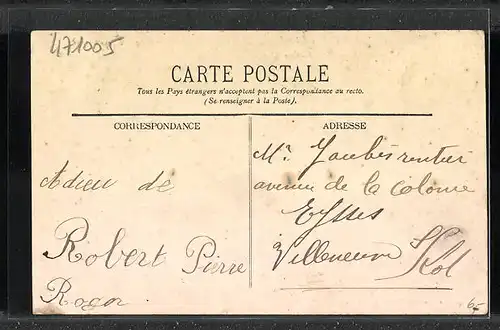 471005
CARTE POSTALE
Tous les Pays étrangers n'acceptent pas la Correspondance au recto.
(Se renseigner à la Poste).
CORRESPONDANCE
Adieu de
Robert Pierre
Roger
ADRESSE
Mr. Jaubès rentier
avenue de la colonne
Eysses
Villeneuve s/Lot
6-